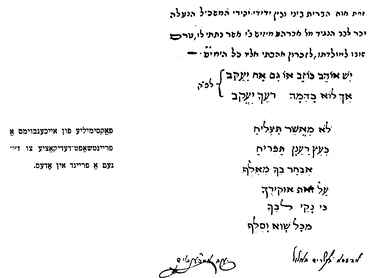 זאת אות הברית ביני ובין ידידי יקירי המשכיל הנעלה
יקר לבב הנגיד מר אברהם נ"י אשר נתתי לו, טרם
שובו למולדתו, לזכרון אהבתי אליו כל הימים —
יֵש אוֹהב כּוֹזב אוֹ גם אָח יַעקב
אך לוֹא כּדמה רעך יַעֲקֹב
לפ״ק
לֹא מֵאֲשֶׁר תצליח
כְּעֵץ רַעֲנָן תַּפְרִיחַ
אבחר בּךָ מֵאֶלֶף
על זֹאת אוֹקירך
כִּי נְקִי לִבֶּךָ
מִכָּל שָׁוא וָסֶלֶף
פאַקסימיליע פון אייכענבוימס אַ
פריינטשאַפט־דעדיקאַציע צו זיי־
נעם אַ פריינד אין אָדעס.